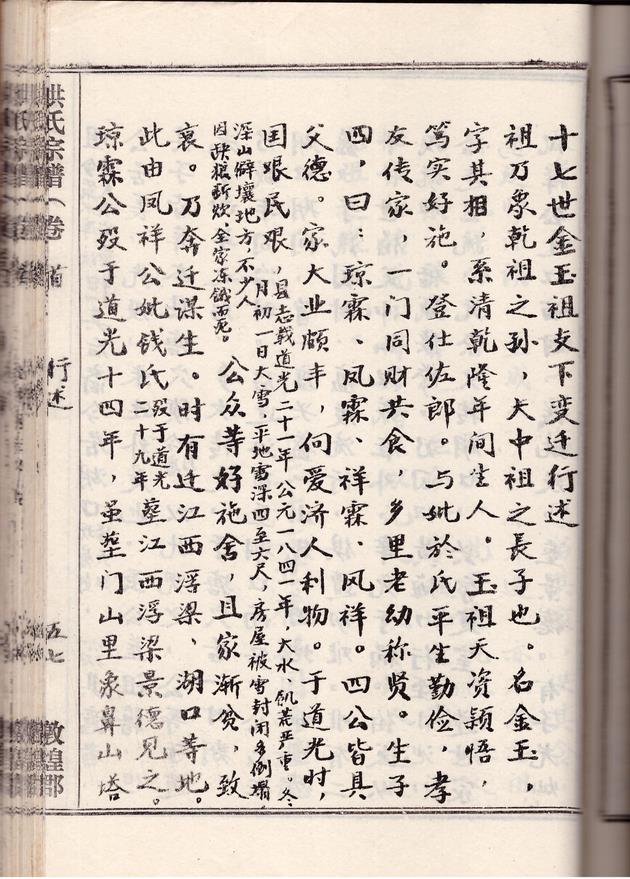 十七世金玉祖支下变迁行述
祖乃象乾祖之孙，大中祖之長子也。名金玉，
字其相，系清乾隆年间生人。玉祖天资颖悟，
笃实好施。登仕佐郎。与妣於氏平生勤俭，孝
友传家，一门同财共食，乡里老幼称贤。生子
四，曰：琼霖、凤霖、祥霖、凤祥。四公皆具
父德。家大业颇丰，何爱济人利物。于道光时，
国艰民艰，县志载道光二十一年公元一八四一年，大水、饥荒严重。冬
月初一日大雪，平地雪深四至六尺，房屋被雪封闭多倒塌
深山僻壤地方，不少人
因缺粮断炊，全家冻饿而死。公众等好施舍，且家渐贫，致
衰。乃奔迁谋生。时有迁江西浮梁、湖口等地。
此由凤祥公妣钱氏殁于道光二十九年墓江西浮梁景德见之。
琼霖公殁于道光十四年，虽茔门山里象鼻山塔
洪氏宗谱（卷首
行述
五七
敦煌郡